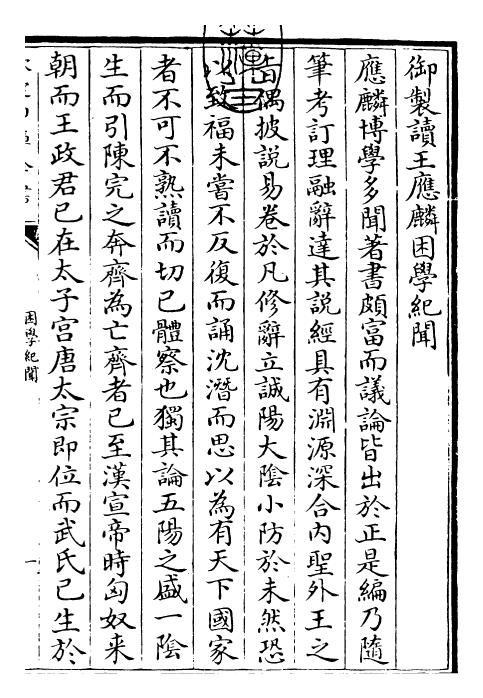 御製讀王應麟困學紀聞
應麟博學多聞著書頗富而議論皆出於正是編乃隨
筆考訂理融辭達其説經具有淵源深合内聖外王之
㫖偶披説易卷於凡修辭立誠陽大陰小防於未然恐
以致福未嘗不反復而誦沈潛而思以為有天下國家
者不可不熟讀而切已體察也獨其論五陽之盛一陰
生而引陳完之奔齊為亡齊者已至漢宣帝時匈奴来
朝而王政君已在太子宫唐太宗即位而武氏已生於
困學紀聞
一